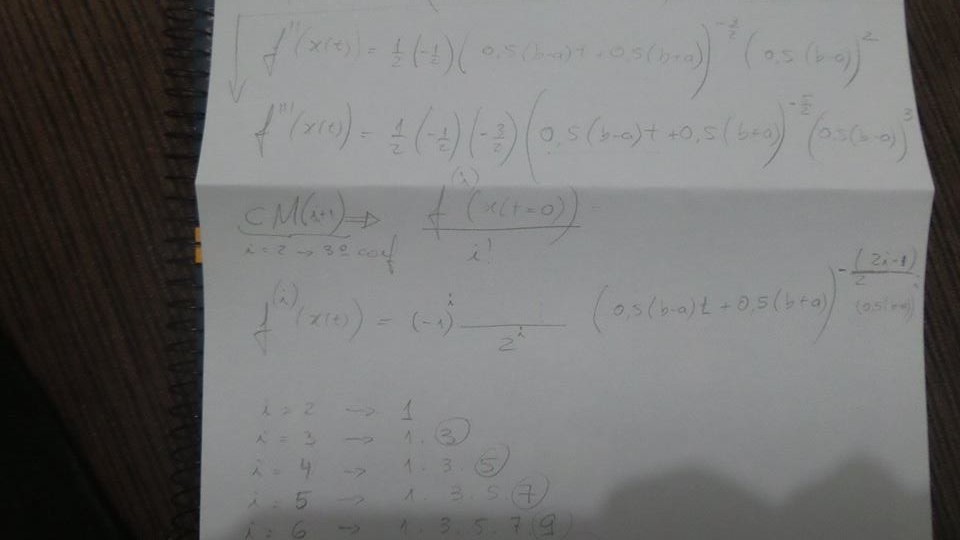 f''(x(t)) = 1/2 (-1/2) ( 0,5(b-a)t + 0,5(b+a) )^(-1/2) ( 0,5(b-a) )^2
f'''(x(t)) = 1/2 (-1/2) (-3/2) ( 0,5(b-a)t + 0,5(b+a) )^(-5/2) (0,5(b-a))^3
CM(i+1) ⇒ f^(i)(x(t=0)) / i!
i=2 → 3º coef
f^(i)(x(t)) = (-1)^i ___ / 2^i ( 0,5(b-a)t + 0,5(b+a) )^(-(2i-1)/2)
i = 2 → 1
i = 3 → 1. 3
i = 4 → 1. 3. 5
i = 5 → 1. 3. 5. 7
i = 6 → 1. 3. 5. 7 9